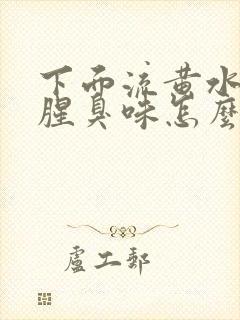 下而流黄水
腥臭味怎麼
盧工郵